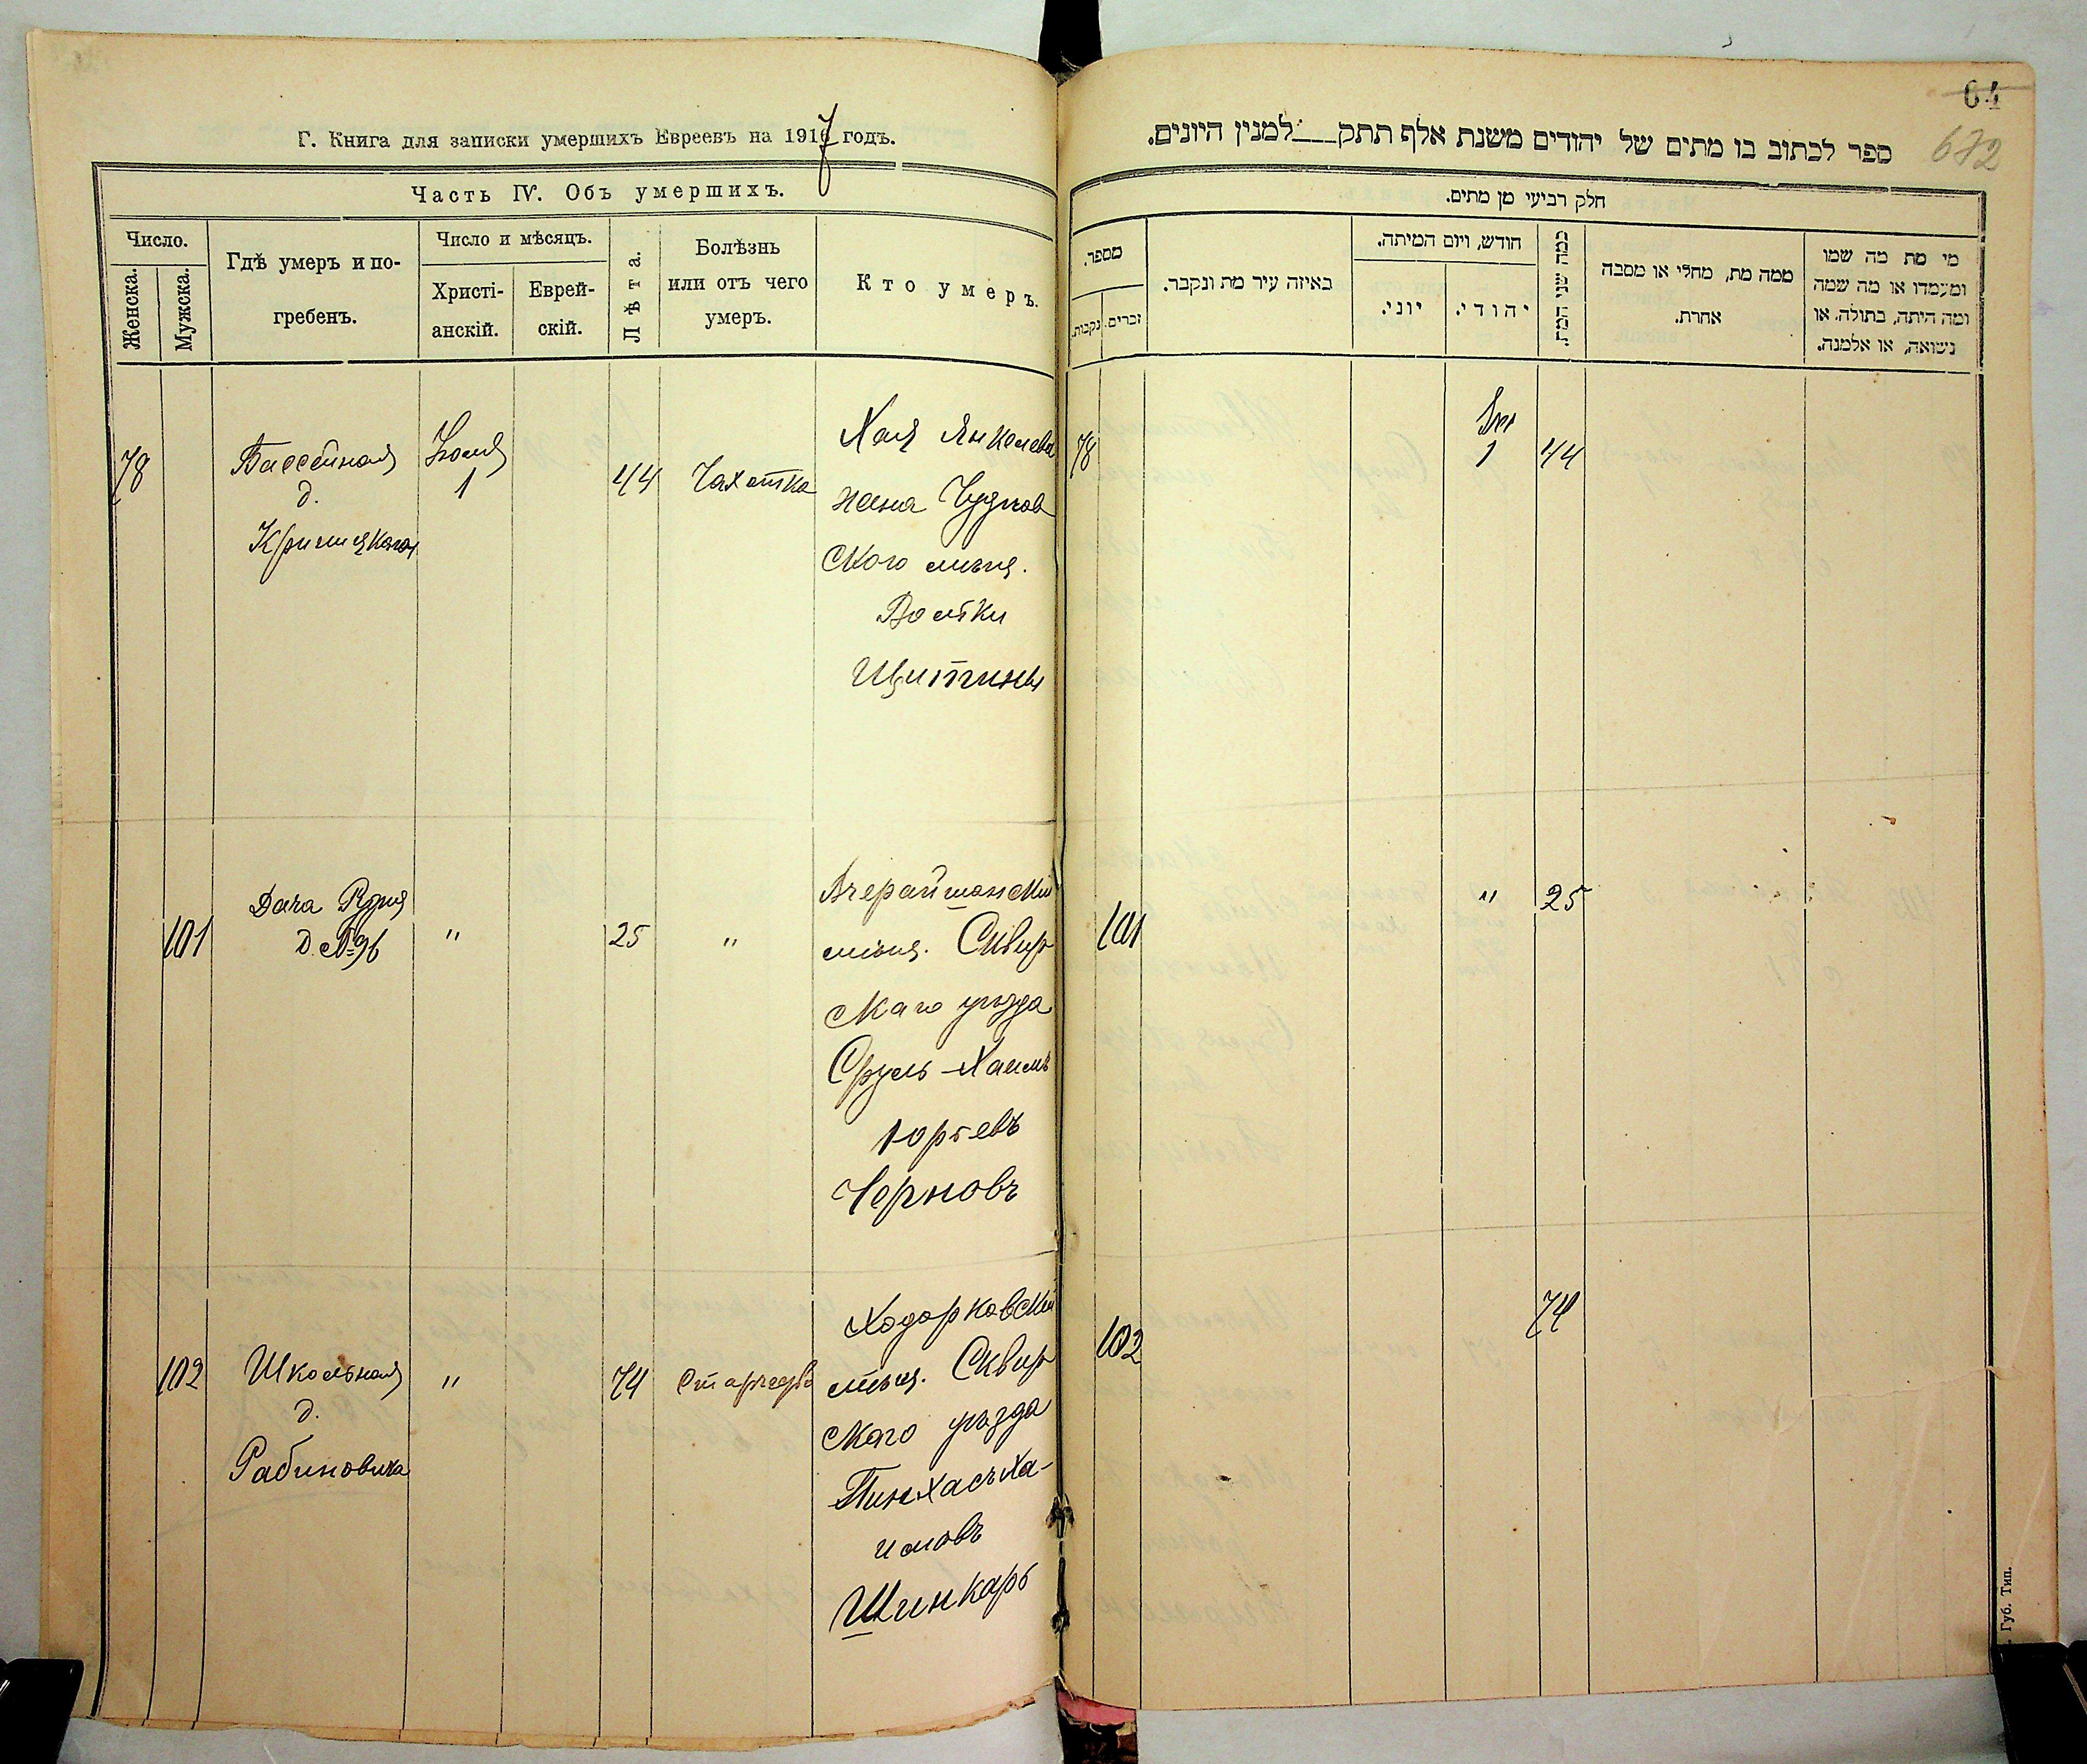 Г. Книга для записки умершихъ Евреевъ на 1917 годъ.
Часть IV. Объ умершихъ.
Число.
Женска.
Мужска.
Гдѣ умеръ и по-
гребенъ.
Число и мѣсяцъ.
Христі-
анскій.
Еврей-
скій.
Лѣта.
Болѣзнь
или отъ чего
умеръ.
Кто умеръ.
78
Бассейная
д.
Криницкаго
1
44
Чахотка
Хая Янкелева
жена Чуднов
ского мѣщ.
Щитины
101
Дача
д. № 96
"
25
"
Вчерайшанскій
мѣщ. Сквир
скаго уѣзда
Сруль-Хаимъ
Юрьевъ
Черновъ
102
Школьная
д.
Рабиновича
"
74
Старчество
Ходорковскій
мѣщ. Сквир
скаго уѣзда
Пинхасъ Ха-
имовъ
Шинкарь
64
672
ספר לכתוב בו מתים של יהודים משנת אלף תתק___למנין היונים.
חלק רביעי מן מתים.
מספר.
נקבות.
זכרים.
באיזה עיר מת ונקבר.
חודש, ויום המיתה.
יוני.
יהודי.
כמה שני המת.
ממה מת, מחלי או מסבה
אחרת.
מי מת מה שמו
ומעמדו או מה שמה
ומה היתה, בתולה, או
נשואה, או אלמנה.
78
1
44
101
"
25
102
74
Губ. Тип.